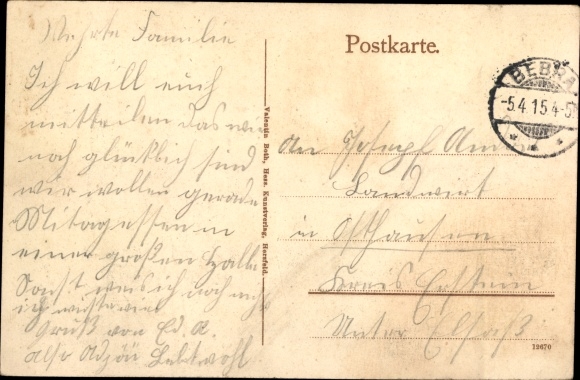 Wehrte Familie
Ich will euch
mitteilen das wir
noch glücklich sind
wir wollen gerade
Mitagessen in
einer großen Halle
Sonst weis ich noch nicht
Gruß von Ed. R.
also Adjöü Lebtwohl
Valentin Both, Hess. Kunstverlag, Hersfeld.
Postkarte.
BEBRA
-5.4.15.4-5
An Joseph
Landwirt
in Osthausen
Kreis Erstein
Unter Elsaß
12670